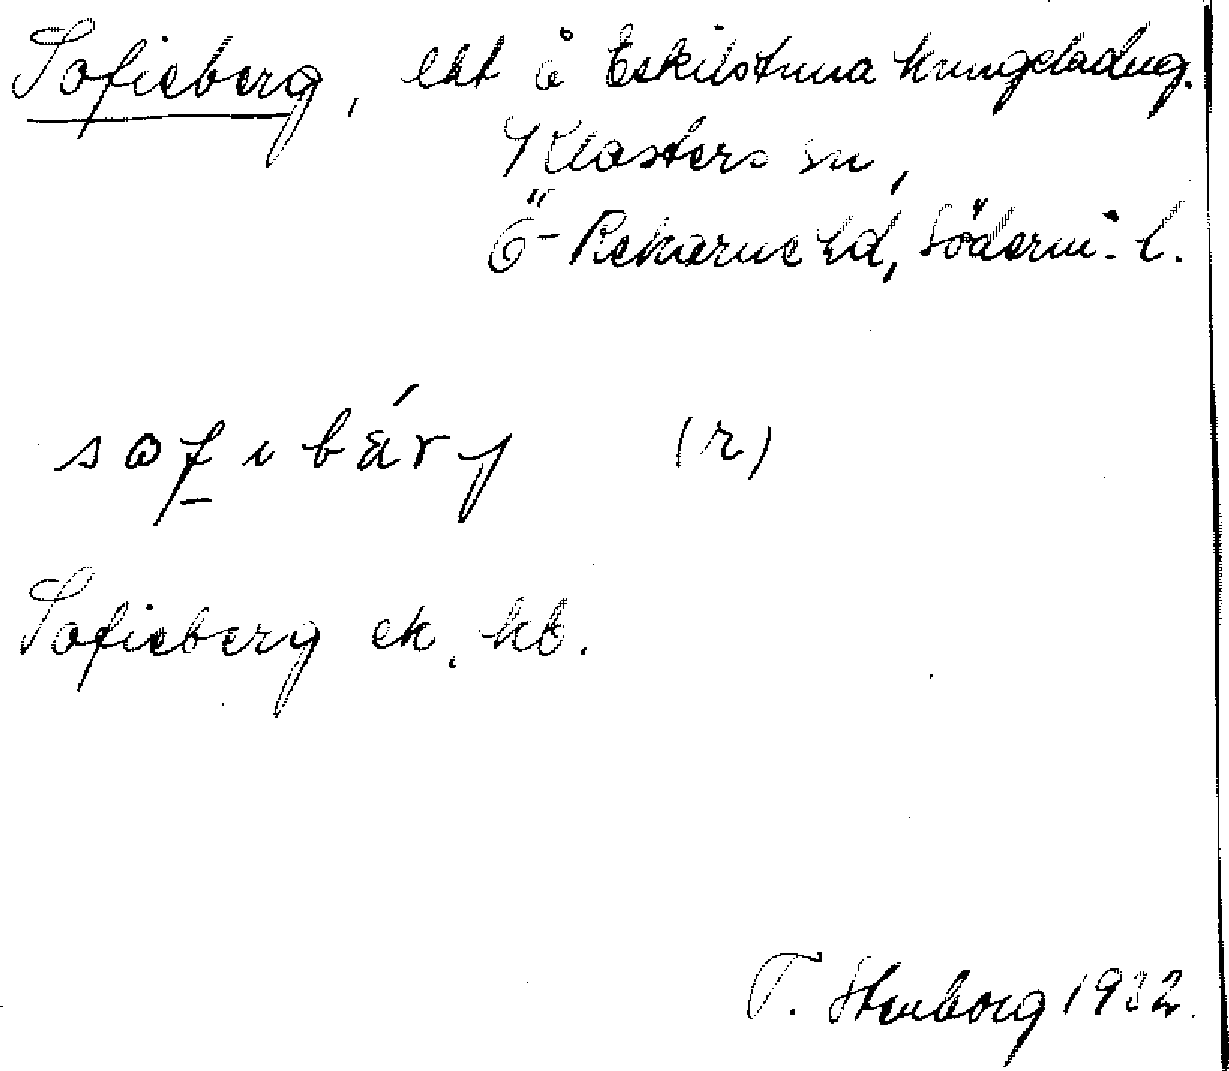 Sofieberg, lht å Eskilstuna kungsladug.
Klosters sn,
Ö-Rekarne hd, Söderm. l.
sofıbärj (r)
Sofieberg ek. kb.
T. Stenborg 1932.